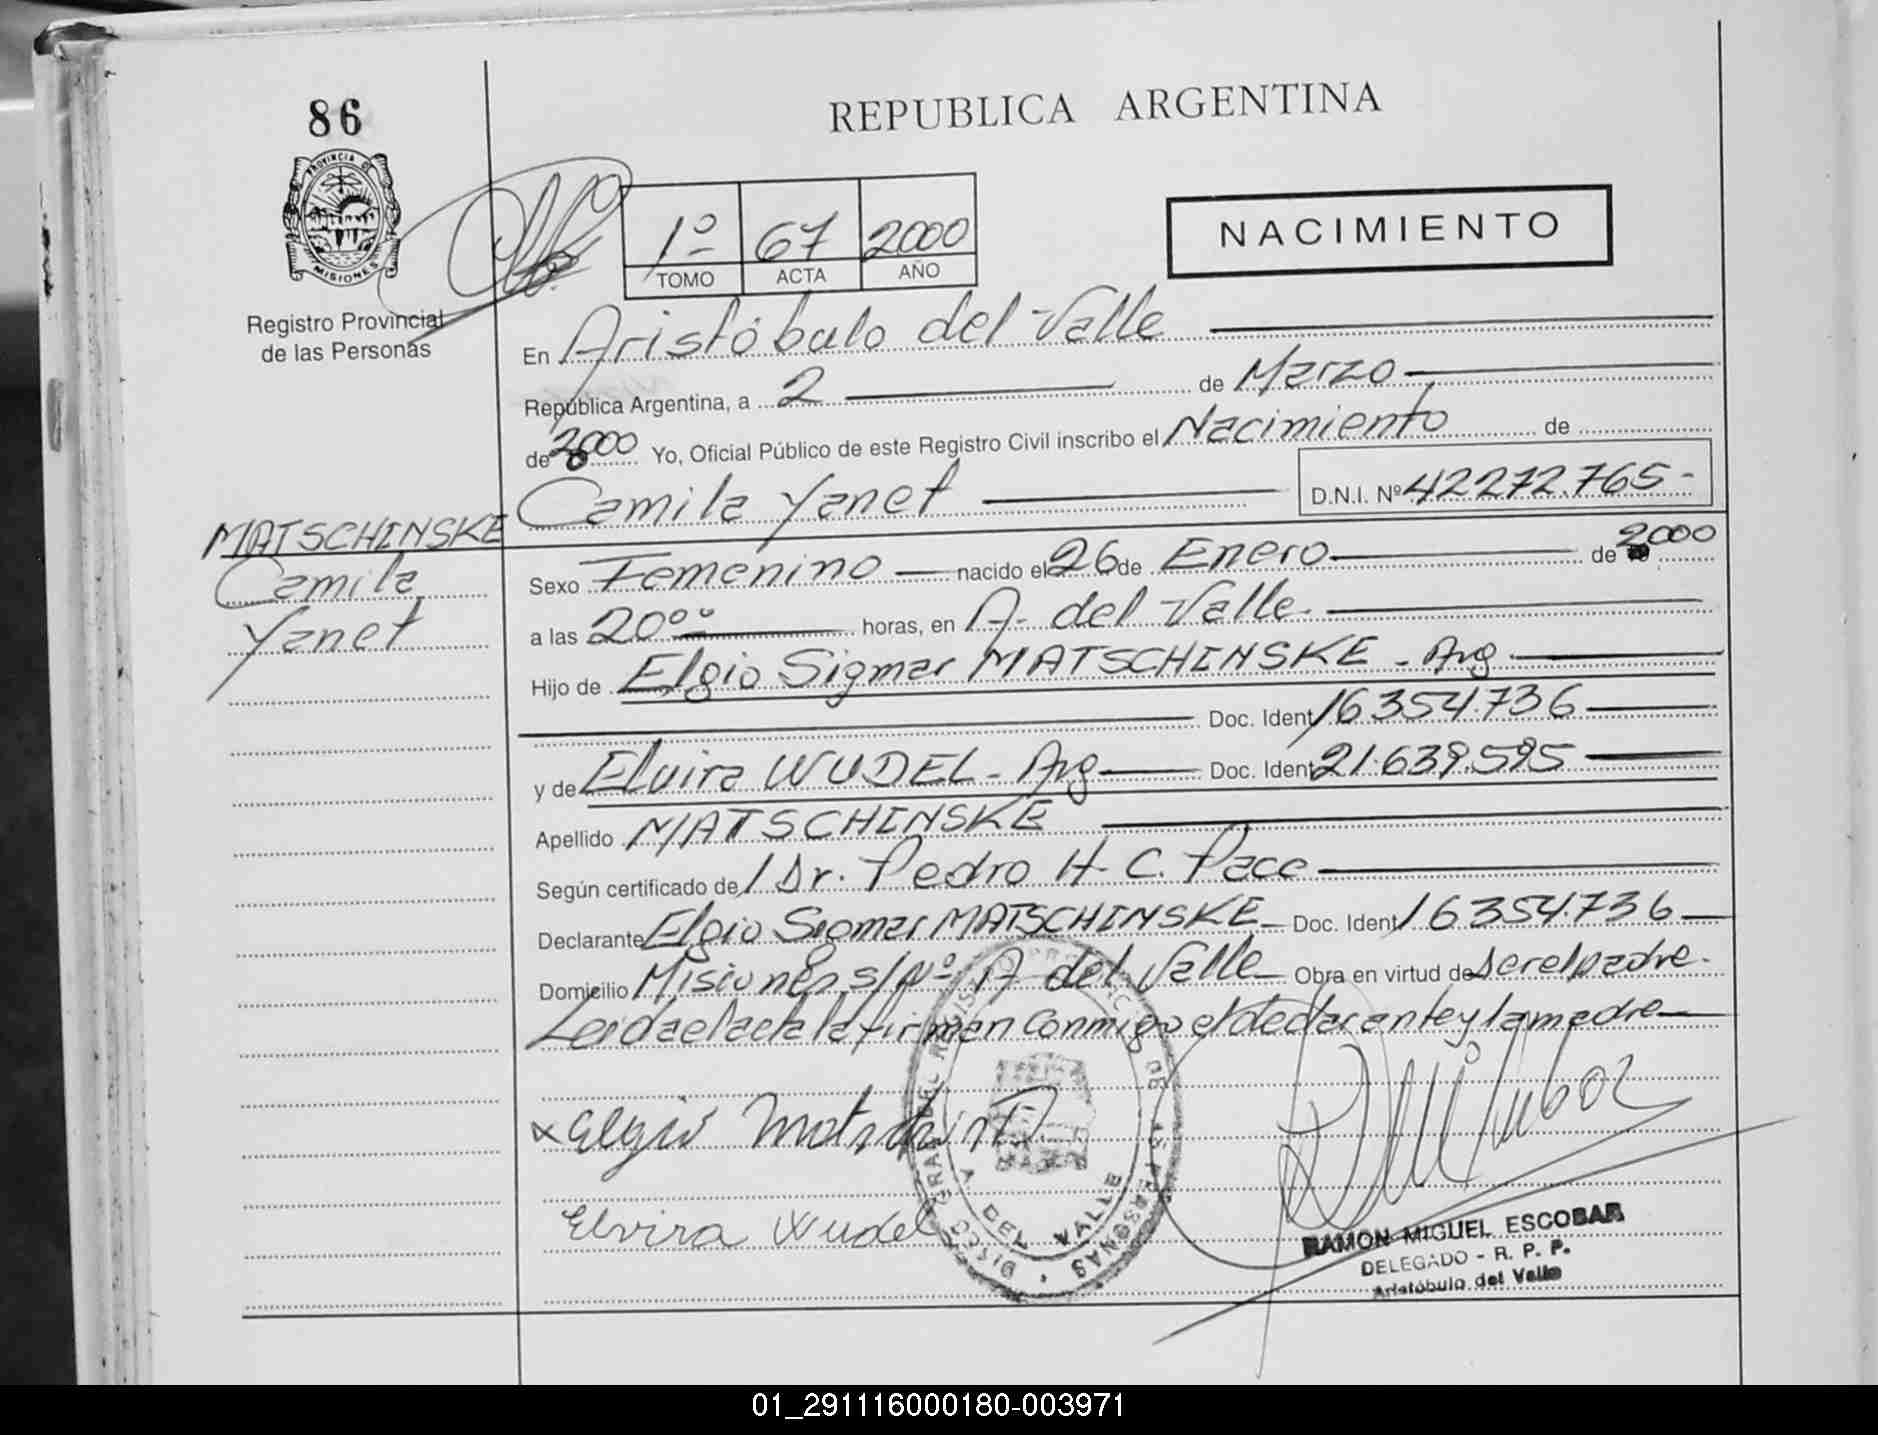 86
REPUBLICA ARGENTINA
PROVINCIA DE
MISIONES
Registro Provincial
de las Personas
1º 67 2000
TOMO ACTA AÑO
NACIMIENTO
En Aristóbulo del Valle
República Argentina, a 2 de Marzo
de 2000 Yo, Oficial Público de este Registro Civil inscribo el Nacimiento de
Camila Yanet D.N.I. Nº 42272.765-
MATSCHINSKE
Camila
Yanet
Sexo Femenino nacido el 26 de Enero de 2000
a las 20ºº horas, en A. del Valle
Hijo de Elgio Sigmar MATSCHINSKE - Arg
Doc. Ident 16354.736
y de Elvira WUDEL - Arg Doc. Ident 21.639.595
Apellido MATSCHINSKE
Según certificado de / Dr. Pedro H. C. Pace
Declarante Elgio Sigmar MATSCHINSKE Doc. Ident 16354.736
Domicilio Misiones s/nº A del Valle Obra en virtud de ser el padre.
Leida el acta la firman conmigo el declarante y la madre
x Elgio
Elvira Wudel
A. DEL VALLE
RAMON MIGUEL ESCOBAR
DELEGADO - R. P. P.
Aristóbulo del Valle
01_291116000180-003971